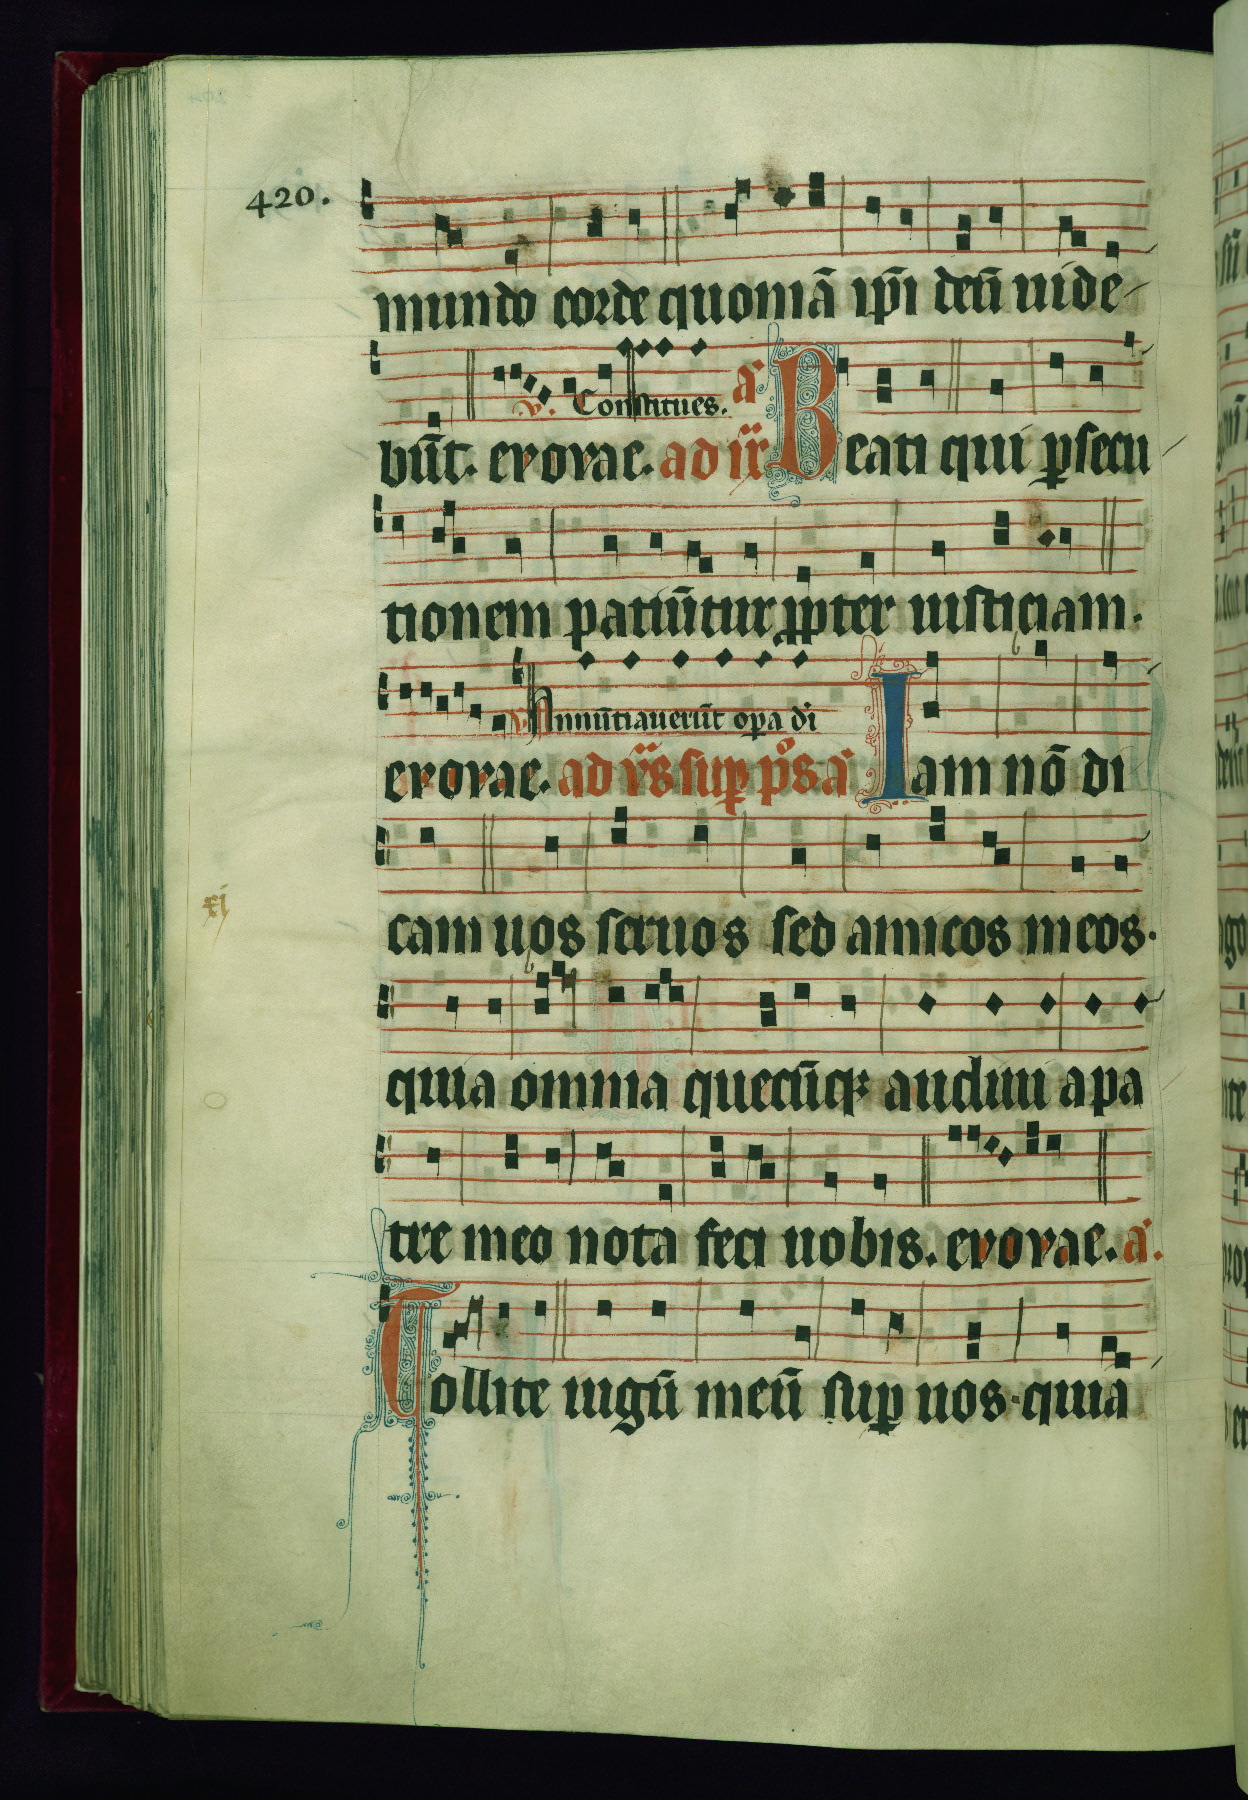 420.
mundo corde quoniā ip̄i deū uide-
℣. Constitues. a̅
būt. evovae. ad ix Beati qui ꝑsecu
tionem patiūtur ꝓpter iusticiam.
℣. Annūtiauerūt oꝑa di
evovae. ad v̅s̅ suꝑ p̅o̅s̅ a̅ Iam nō di
cam uos seruos sed amicos meos.
quia omnia quecūqꝫ audiui a pa
tre meo nota feci uobis. evovae. a̅.
Tollite iugū meū suꝑ uos. quia